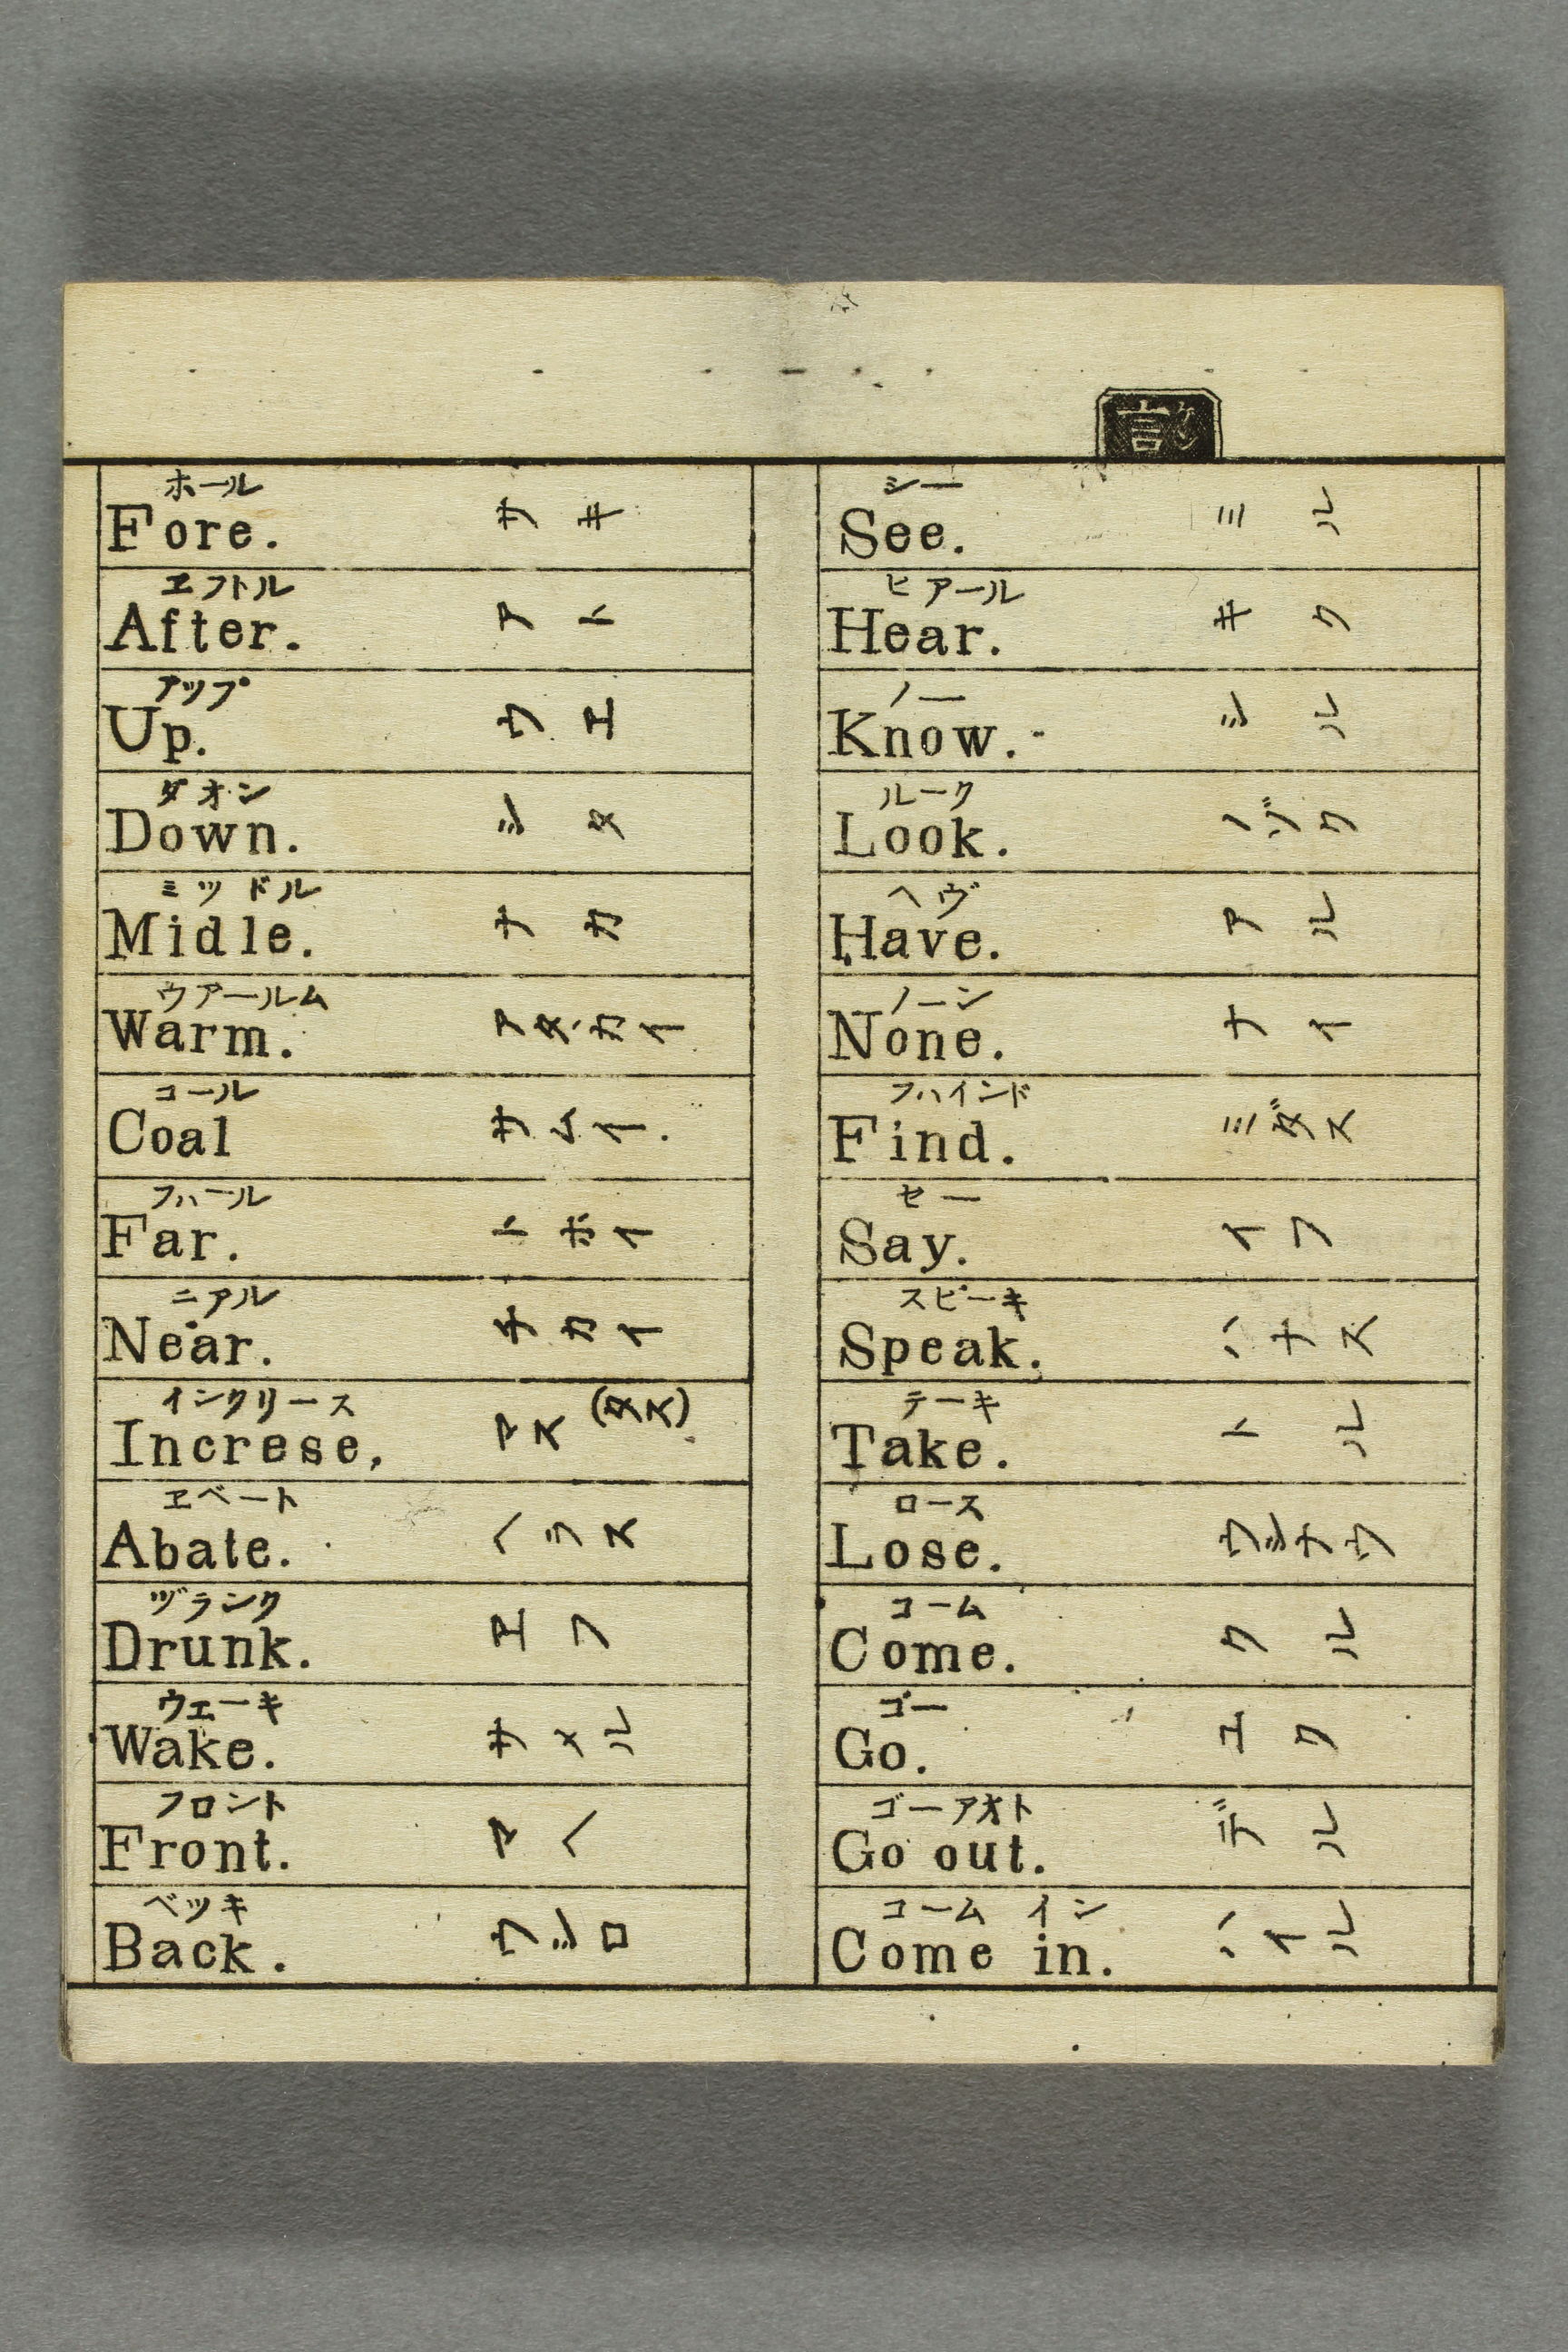 言
ホール
Fore. サキ
ヱフトル
After. アト
アップ
Up. ウエ
ダオン
Down. シタ
ミッドル
Midle. ナカ
ウアールム
Warm. アタヽカイ
コール
Coal サムイ
フハール
Far. トホイ
ニアル
Near. チカイ
インクリース
Increse, マス (タス)
ヱベート
Abate. ヘラス
ヅランク
Drunk. ヱフ
ウェーキ
Wake. サメル
フロント
Front. マヘ
ベッキ
Back. ウシロ
シー
See. ミル
ヒアール
Hear. キク
ノー
Know. シル
ルーク
Look. ノゾク
ヘヴ
Have. アル
ノーン
None. ナイ
フハインド
Find. ミダス
セー
Say. イフ
スピーキ
Speak. ハナス
テーキ
Take. トル
ロース
Lose. ウシナウ
コーム
Come. クル
ゴー
Go. ユク
ゴーアオト
Go out. デル
コーム イン
Come in. ハイル